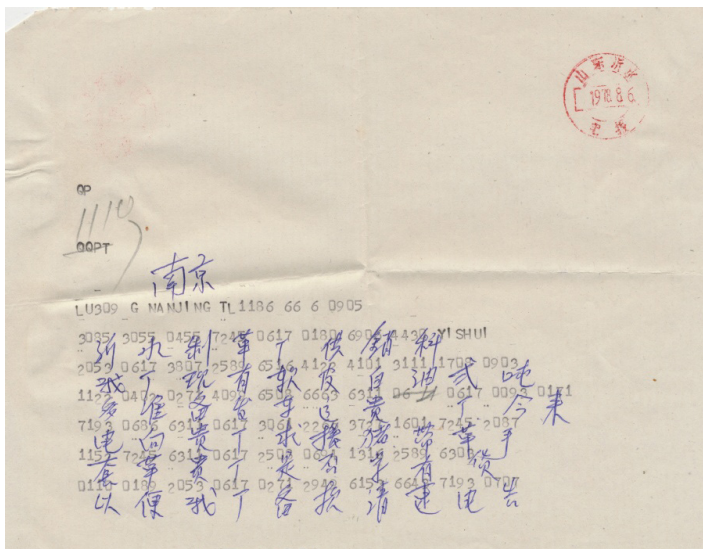 山东沂水
1978.8.6
电报
QP
1110
QQPT
南京
LU309 G NANJING TL1186 66 6 0905
3085 3055 0455 7245 0617 0180 6904 4430 YISHUI
沂水制革厂供销科
2053 0617 3807 2589 6516 4126 4101 3111 1708 0903
我厂现有软皮白油弍吨
1122 0402 0271 4099 6508 6665 6311 0617 0093 0171
多准备发车贵厂今来
7193 0686 6311 0617 3061 2234 3720 1601 7245 2087
电向贵厂求援猪带革手
1152 7245 6311 0617 2508 0694 1316 2589 6303
套革贵厂是否有货
0110 0189 2053 0617 0271 2943 6153 6643 7193 0707
以便我厂备款请速电告